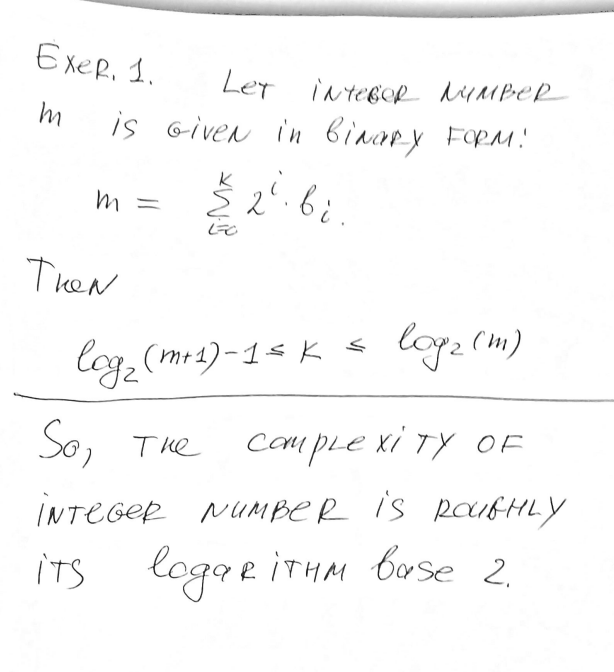 Exer. 1. Let integer number
m is given in binary form:
m = Σ_{i=0}^{k} 2^i · b_i.
Then
log₂(m+1)-1 ≤ k ≤ log₂(m)
So, the complexity of
integer number is roughly
its logarithm base 2.